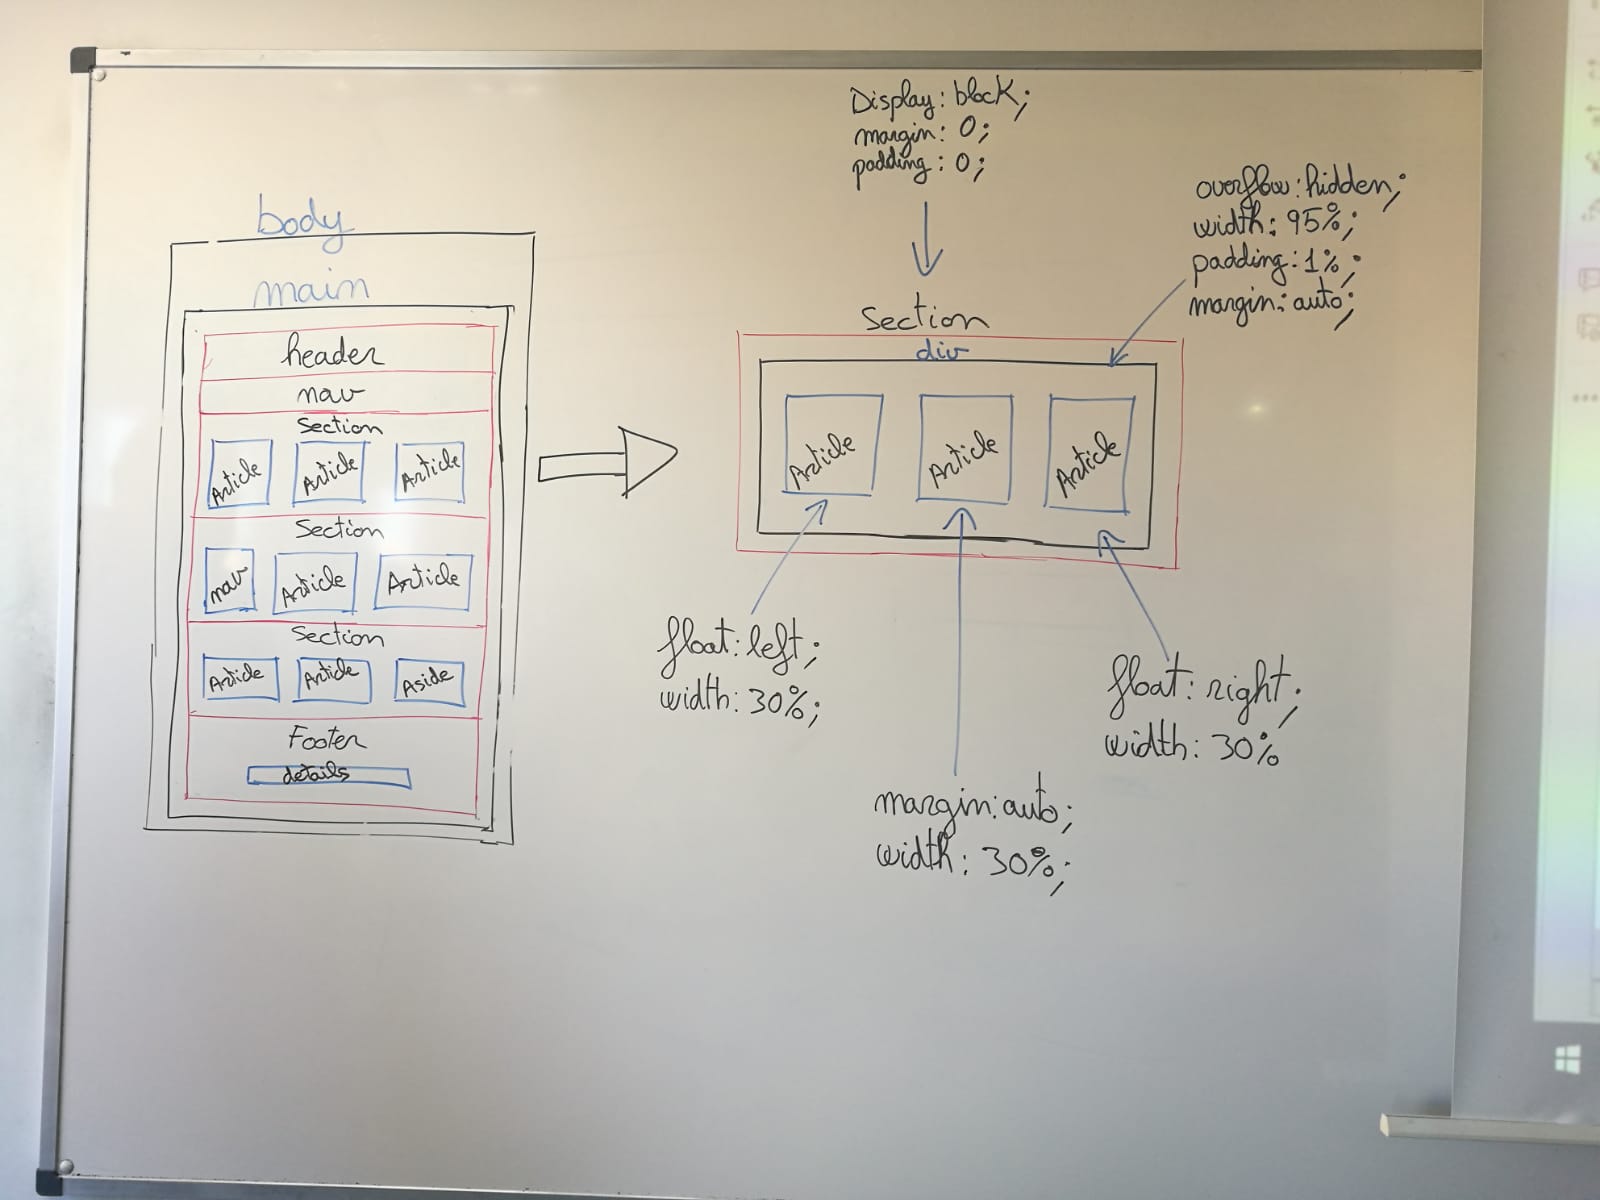 body
main
header
nav
Section
Article Article Article
Section
nav Article Article
Section
Article Article Aside
Footer
details
Display: block;
margin: 0;
padding: 0;
overflow: hidden;
width: 95%;
padding: 1%;
margin: auto;
Section
div
Article Article Article
float: left;
width: 30%;
margin: auto;
width: 30%;
float: right;
width: 30%